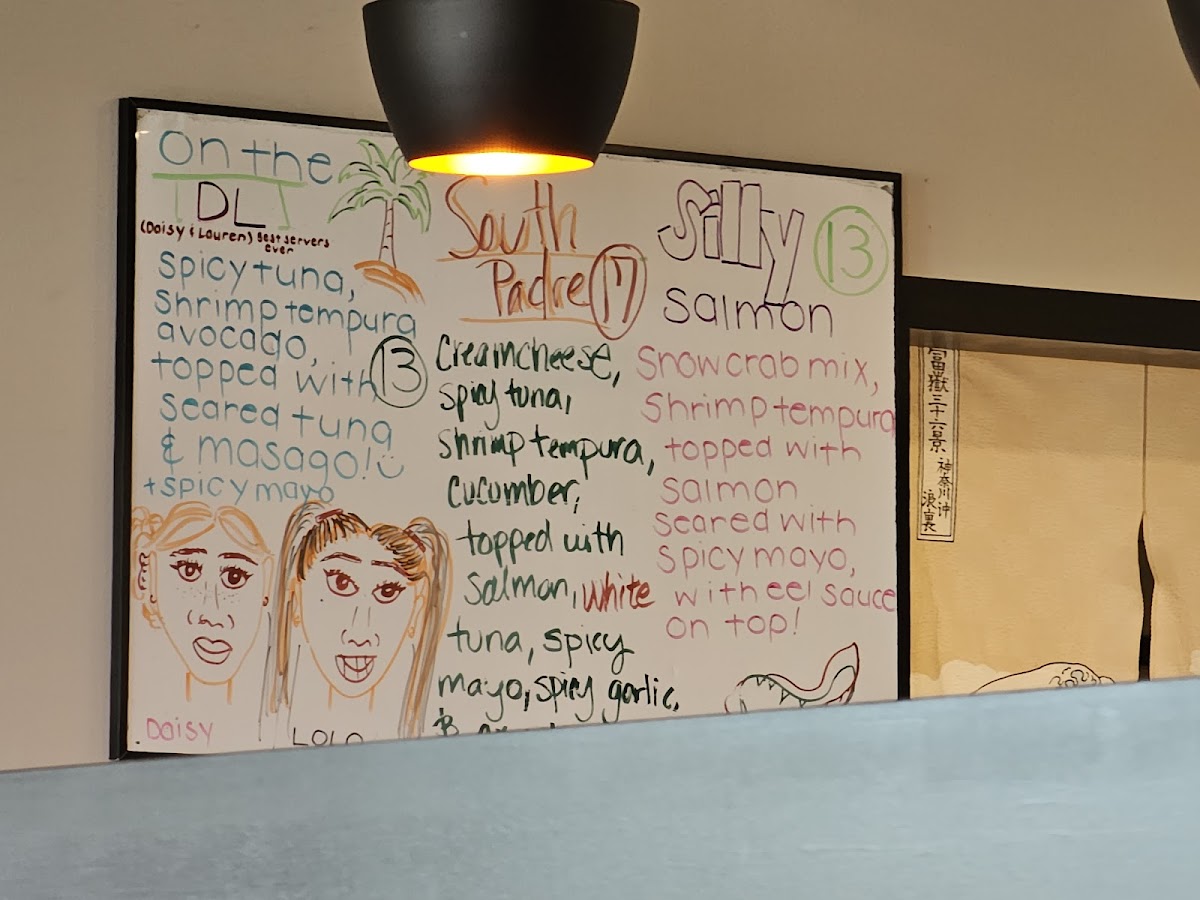 On the
DL
(Daisy & Lauren) Best servers
ever
spicy tuna,
shrimp tempura
avocado,
topped with
13
seared tuna
& masago!
+ spicy mayo
Daisy
LOLO
South
Padre
17
Creamcheese,
spicy tuna,
shrimp tempura,
cucumber,
topped with
salmon, white
tuna, spicy
mayo, spicy garlic,
&
Silly
13
salmon
snowcrab mix,
shrimp tempura
topped with
salmon
seared with
spicy mayo,
with eel sauce
on top!
富嶽三十六景
神奈川沖
浪裏